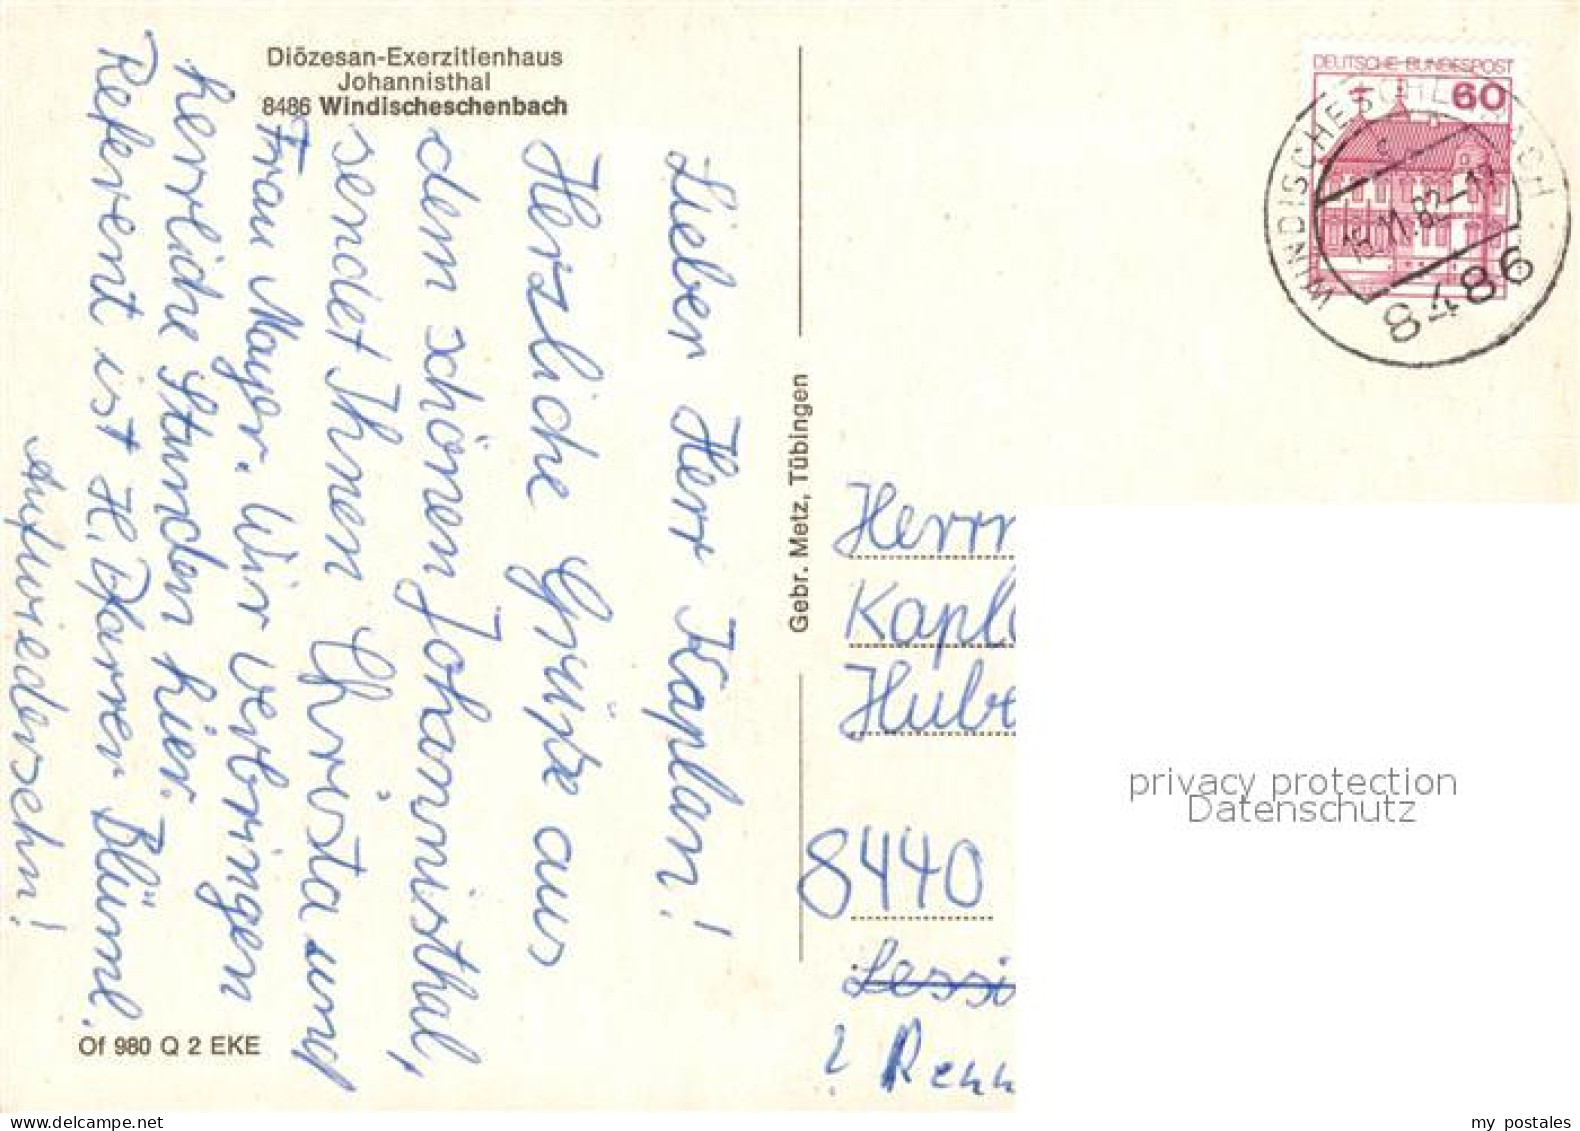 Diözesan-Exerzitienhaus
Johannisthal
8486 Windischeschenbach
Lieber Herr Kaplan!
Herzliche Grüße aus
dem schönen Johannisthal,
sendet Ihnen Christa und
Frau Mayer. Wir verbringen
herrliche Stunden hier.
Referent ist H. Pfarrer Blüml.
Aufwiedersehn!
Of 980 Q 2 EKE
Gebr. Metz, Tübingen
DEUTSCHE BUNDESPOST
60
WINDISCHESCHENBACH
11.82
8486
Herrn
Kapl
Hube
8440
Lessi
? Renn
privacy protection
Datenschutz
my postales